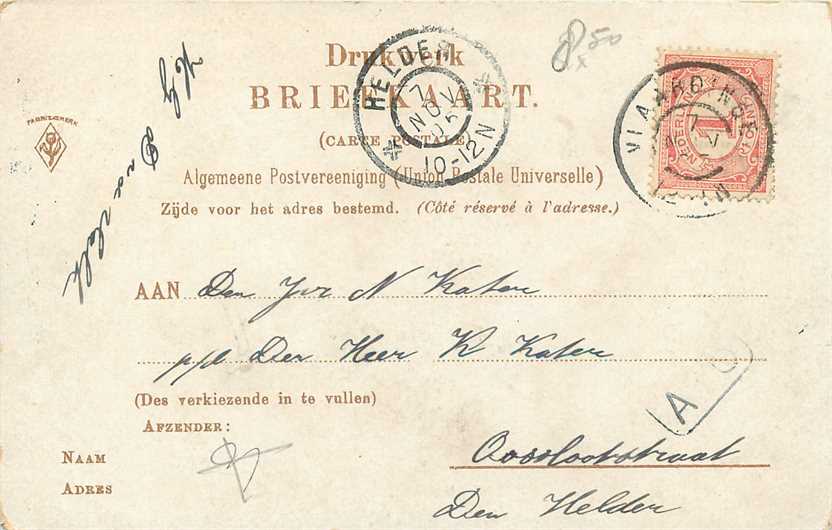 Drukwerk
BRIEFKAART.
(CARTE POSTALE)
Algemeene Postvereeniging (Union Postale Universelle)
Zijde voor het adres bestemd. (Côté réservé à l'adresse.)
HELDER
7 NOV 05
10-12N
VLAARDINGEN
7
NEDERLAND
1
CENT
8 50
FABRIEKSMERK
AAN Den Jvr N Kater
p/a Den Heer K Kater
(Des verkiezende in te vullen)
AFZENDER:
A
NAAM
ADRES
Den Helder